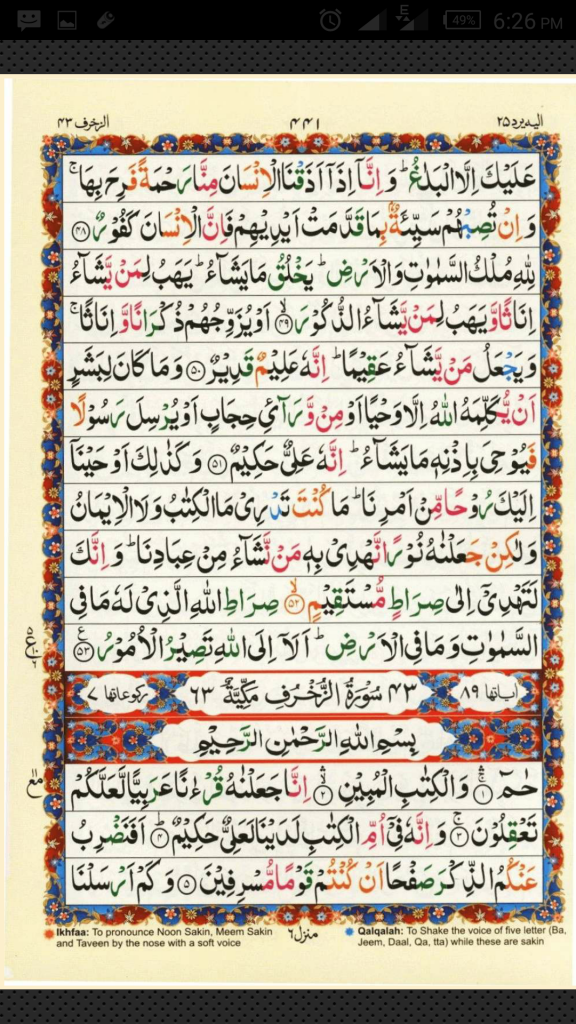 49% 6:26 PM
الزخرف ۴۳ ۴۴۱ اليه يرد ۲۵
عَلَيْكَ اِلَّا الْبَلٰغُ ؕ وَ اِنَّاۤ اِذَاۤ اَذَقْنَا الْاِنْسَانَ مِنَّا رَحْمَةً فَرِحَ بِهَا ۚ
وَ اِنْ تُصِبْهُمْ سَيِّئَةٌۢ بِمَا قَدَّمَتْ اَيْدِيْهِمْ فَاِنَّ الْاِنْسَانَ كَفُوْرٌ ﴿۴۸﴾
لِلّٰهِ مُلْكُ السَّمٰوٰتِ وَ الْاَرْضِ ؕ يَخْلُقُ مَا يَشَآءُ ؕ يَهَبُ لِمَنْ يَّشَآءُ
اِنَاثًا وَّ يَهَبُ لِمَنْ يَّشَآءُ الذُّكُوْرَ ﴿ۙ۴۹﴾ اَوْ يُزَوِّجُهُمْ ذُكْرَانًا وَّ اِنَاثًا ۚ
وَ يَجْعَلُ مَنْ يَّشَآءُ عَقِيْمًا ؕ اِنَّهٗ عَلِيْمٌ قَدِيْرٌ ﴿۵۰﴾ وَ مَا كَانَ لِبَشَرٍ
اَنْ يُّكَلِّمَهُ اللّٰهُ اِلَّا وَحْيًا اَوْ مِنْ وَّرَآئِ حِجَابٍ اَوْ يُرْسِلَ رَسُوْلًا
فَيُوْحِيَ بِاِذْنِهٖ مَا يَشَآءُ ؕ اِنَّهٗ عَلِيٌّ حَكِيْمٌ ﴿۵۱﴾ وَ كَذٰلِكَ اَوْحَيْنَاۤ
اِلَيْكَ رُوْحًا مِّنْ اَمْرِنَا ؕ مَا كُنْتَ تَدْرِيْ مَا الْكِتٰبُ وَ لَا الْاِيْمَانُ
وَ لٰكِنْ جَعَلْنٰهُ نُوْرًا نَّهْدِيْ بِهٖ مَنْ نَّشَآءُ مِنْ عِبَادِنَا ؕ وَ اِنَّكَ
لَتَهْدِيْۤ اِلٰى صِرَاطٍ مُّسْتَقِيْمٍ ﴿ۙ۵۲﴾ صِرَاطِ اللّٰهِ الَّذِيْ لَهٗ مَا فِي
السَّمٰوٰتِ وَ مَا فِي الْاَرْضِ ؕ اَلَاۤ اِلَى اللّٰهِ تَصِيْرُ الْاُمُوْرُ ﴿۵۳﴾
اٰياتها ۸۹ ۴۳ سُوْرَةُ الزُّخْرُفِ مَكِّيَّةٌ ۶۳ ركوعاتها ۷
بِسْمِ اللّٰهِ الرَّحْمٰنِ الرَّحِيْمِ
حٰمٓ ﴿ۚۛ۱﴾ وَ الْكِتٰبِ الْمُبِيْنِ ﴿ۙۛ۲﴾ اِنَّا جَعَلْنٰهُ قُرْءٰنًا عَرَبِيًّا لَّعَلَّكُمْ
تَعْقِلُوْنَ ﴿ۚ۳﴾ وَ اِنَّهٗ فِيْۤ اُمِّ الْكِتٰبِ لَدَيْنَا لَعَلِيٌّ حَكِيْمٌ ﴿ؕ۴﴾ اَفَنَضْرِبُ
عَنْكُمُ الذِّكْرَ صَفْحًا اَنْ كُنْتُمْ قَوْمًا مُّسْرِفِيْنَ ﴿۵﴾ وَ كَمْ اَرْسَلْنَا
منزل ۶
Ikhfaa: To pronounce Noon Sakin, Meem Sakin
and Taveen by the nose with a soft voice
Qalqalah: To Shake the voice of five letter (Ba,
Jeem, Daal, Qa, tta) while these are sakin